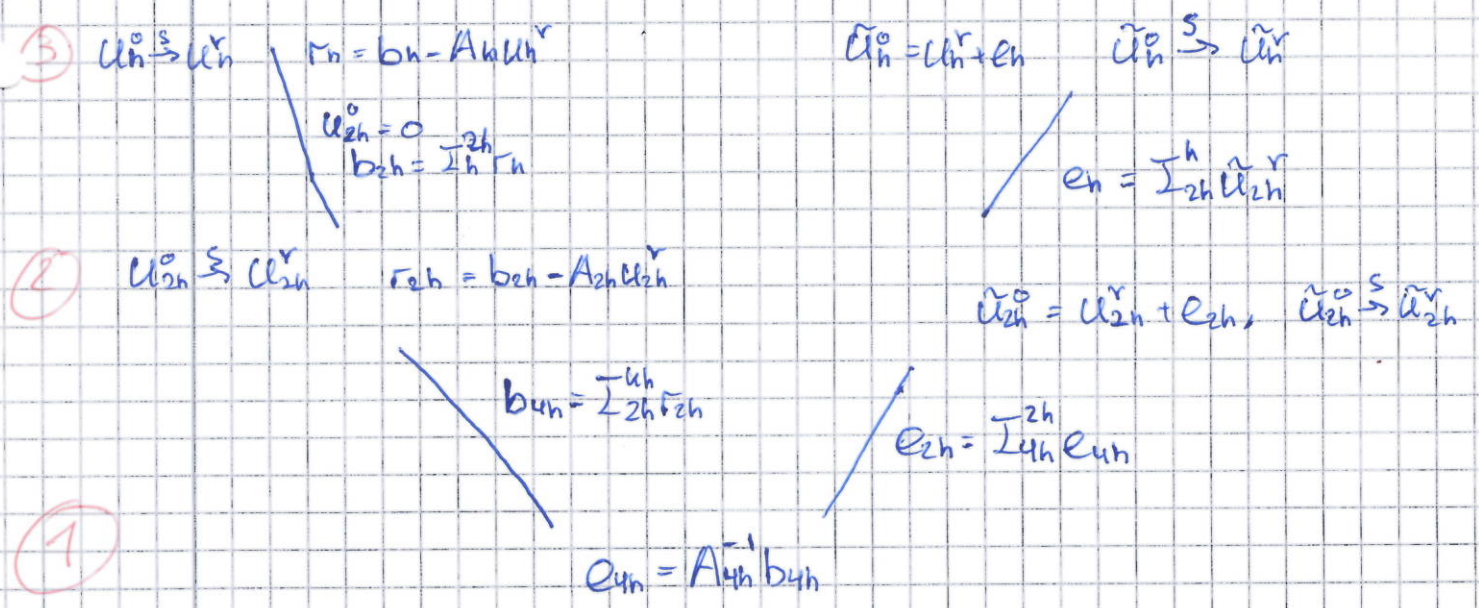 ③ u_h^0 →^S u_h^ν r_h = b_h - A_h u_h^ν ũ_h^0 = u_h^ν + e_h ũ_h^0 →^S ũ_h^ν
u_{2h}^0 = 0
b_{2h} = I_h^{2h} r_h e_h = I_{2h}^h ũ_{2h}^ν
② u_{2h}^0 →^S u_{2h}^ν r_{2h} = b_{2h} - A_{2h} u_{2h}^ν
ũ_{2h}^0 = u_{2h}^ν + e_{2h}, ũ_{2h}^0 →^S ũ_{2h}^ν
b_{4h} = I_{2h}^{4h} r_{2h} e_{2h} = I_{4h}^{2h} e_{4h}
① e_{4h} = A_{4h}^{-1} b_{4h}